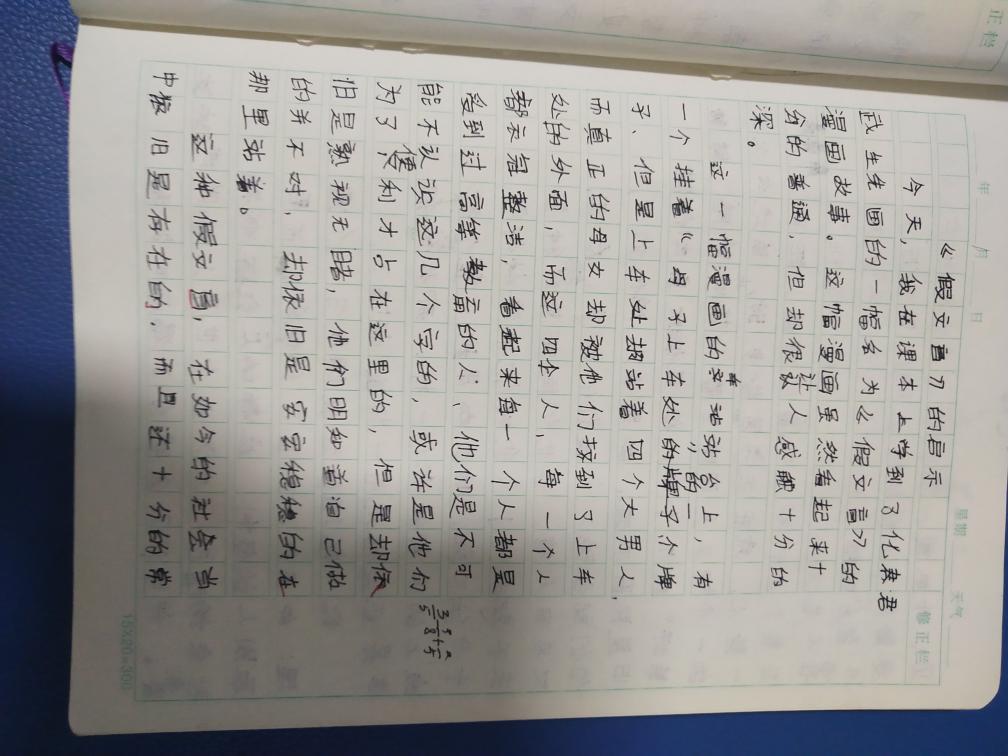 年 月 日 星期 天气
修正栏
《假文盲》的启示
今天，我在课本上学到了化
武生先画的一幅名为《假文盲》的
漫画故事。这幅漫画虽然看起来十
分的普通，但却很让人感触十分的
深。
这一幅漫画的站台上，有
一个挂着《母子上车处的牌
子、但是上车处却站着四个大男人，
而真正的母女却被他们挨到了上车
处的外面，而这四个人，每一个人
都衣冠整洁，看起来每一个人都是
受到过高等教育的人、他们是不可
能不认识这几个字的，或许是他们
为了便利才占在这里的，但是却依
旧是熟视无睹，他们明知道自己做
的并不对，却依旧是安安稳稳的在
那里站着。
这种假文盲，在如今的社会当
中依旧是存在的，而且还十分的常
15×20=300
正栏